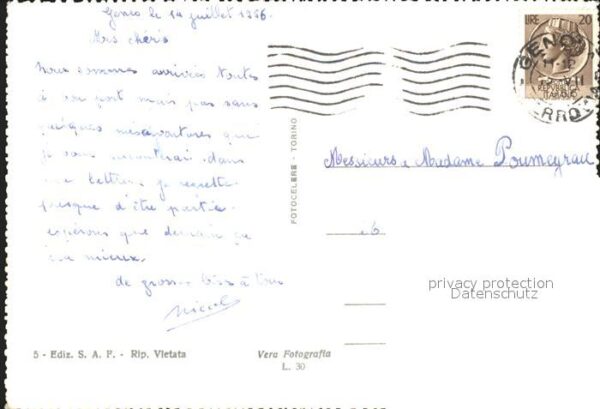 le 14 juillet 1956.
Mes chéris
Nous sommes arrivées toutes
à bon port mais pas sans
quelques mésaventures que
je vous raconterai dans
une lettre. je regrette
presque d'être partie
espérons que demain ça
ira mieux.
de grosses bises à tous
Nicole
5 - Ediz. S. A. F. - Rip. Vietata
Vera Fotografia
L. 30
FOTOCELERE - TORINO
LIRE 20
GENOVA
FERROVIA
Messieurs Madame Poumeyrau
privacy protection
Datenschutz